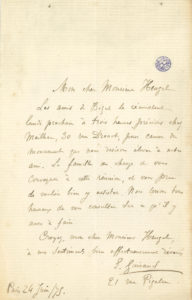 Mon cher Monsieur Heugel
Les amis de Bizet se réunissent
lundi prochain à trois heures précises chez
30 rue Drouot, pour causer du
monument que nous voulons élever à notre
ami. La famille me charge de vous
convoquer à cette réunion, et vous prie
de vouloir bien y assister. Nous serions bien
heureux de vous consulter sur ce qu'il y
aura à faire.
Croyez, mon cher Monsieur Heugel,
à mes sentiments bien affectueusement dévoués
E. Guiraud
21 rue Pigalle
Paris 24 Juin/75.